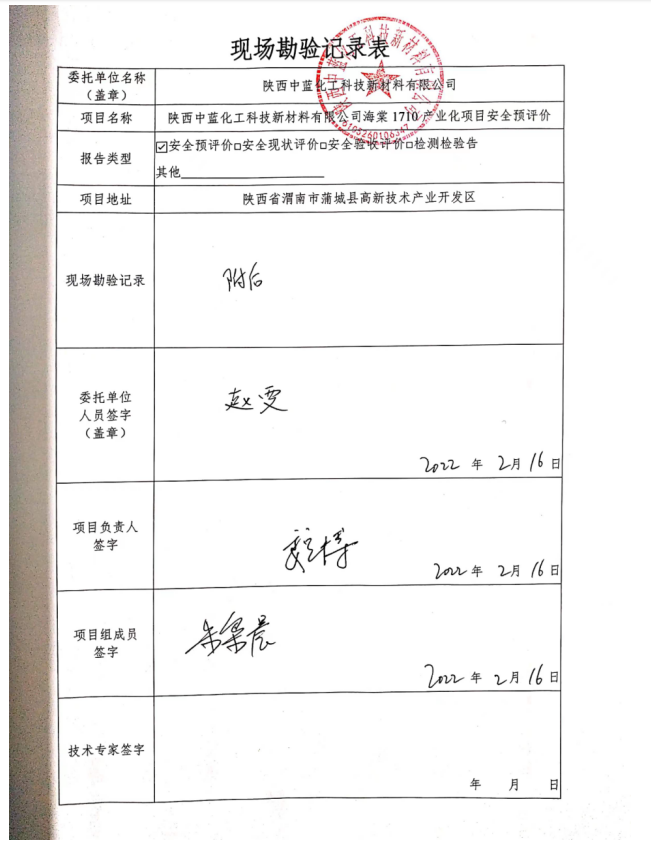 现场勘验记录表
委托单位名称
（盖章）
陕西中蓝化工科技新材料有限公司
项目名称
陕西中蓝化工科技新材料有限公司海棠1710产业化项目安全预评价
报告类型
☑安全预评价□安全现状评价□安全验收评价□检测检验告
其他
项目地址
陕西省渭南市蒲城县高新技术产业开发区
现场勘验记录
附后
委托单位
人员签字
（盖章）
赵雯
2022 年 2月 16 日
项目负责人
签字
2022 年 2月 16 日
项目组成员
签字
朱梁晨
2022 年 2月 16 日
技术专家签字
年 月 日